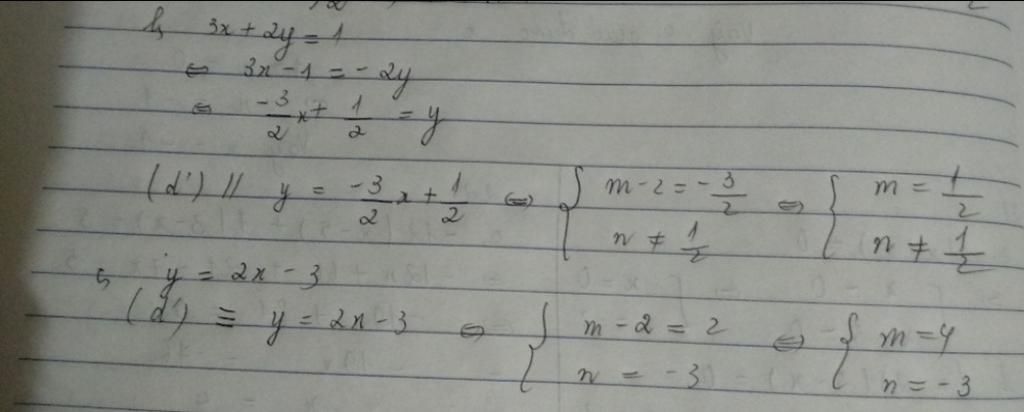 b, 3x + 2y = 1
⇔ 3x - 1 = - 2y
⇔ -3/2 x + 1/2 = y
(d') // y = -3/2 x + 1/2 ⇔ { m - 2 = -3/2 ; n ≠ 1/2 ⇔ { m = 1/2 ; n ≠ 1/2
c, y = 2x - 3
(d') ≡ y = 2x - 3 ⇔ { m - 2 = 2 ; n = -3 ⇔ { m = 4 ; n = -3